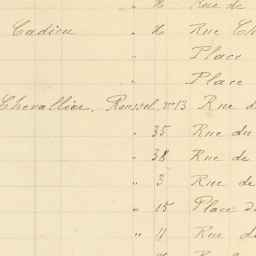 " " Rue de
Cadieu " " Rue Ch
" Place
" Place
Chevallier, Roussel, n° 13 Rue d
" 35 Rue du
" 38 Rue de
" 3 Rue de
" 15 Place de
" 11 Rue de
Rue de